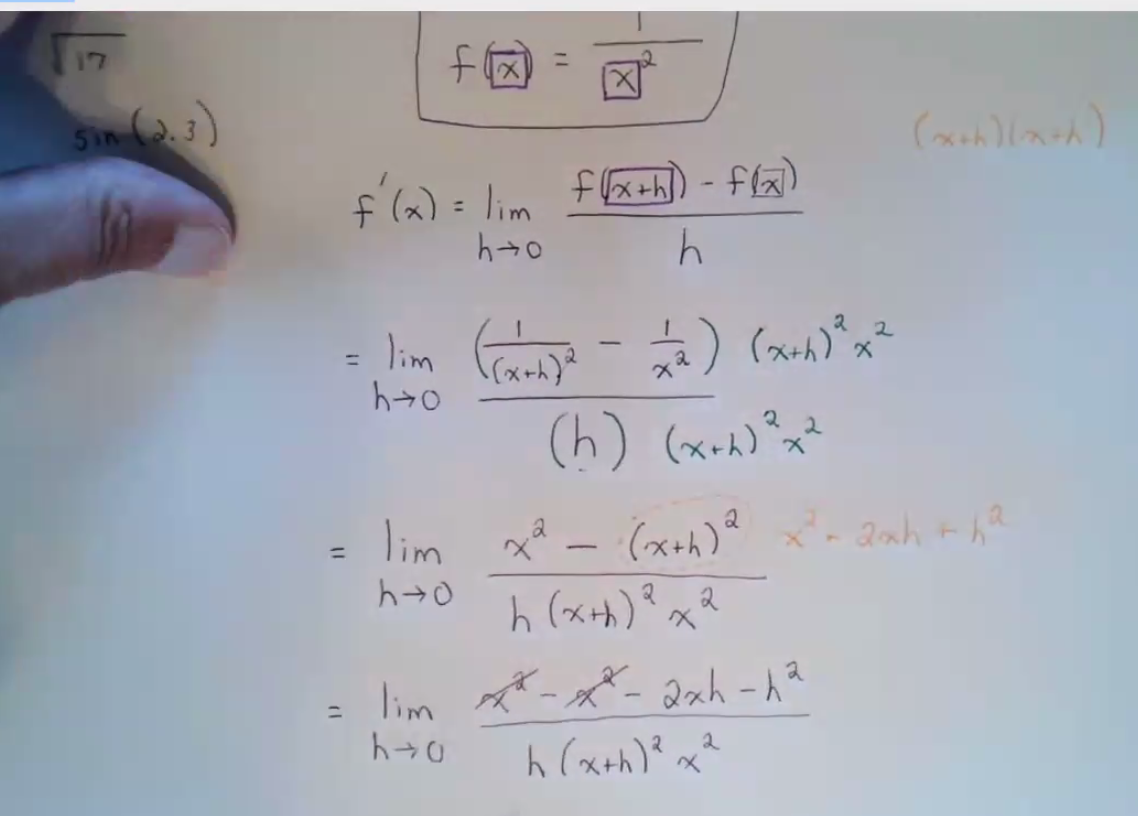 √17
f(x) = 1/x²
sin(2.3)
(x+h)(x+h)
f'(x) = lim h→0 (f(x+h) - f(x))/h
= lim h→0 ((1/(x+h)² - 1/x²) (x+h)² x²)/((h) (x+h)² x²)
= lim h→0 (x² - (x+h)²)/(h(x+h)² x²) x² - 2xh + h²
= lim h→0 (x² - x² - 2xh - h²)/(h(x+h)² x²)